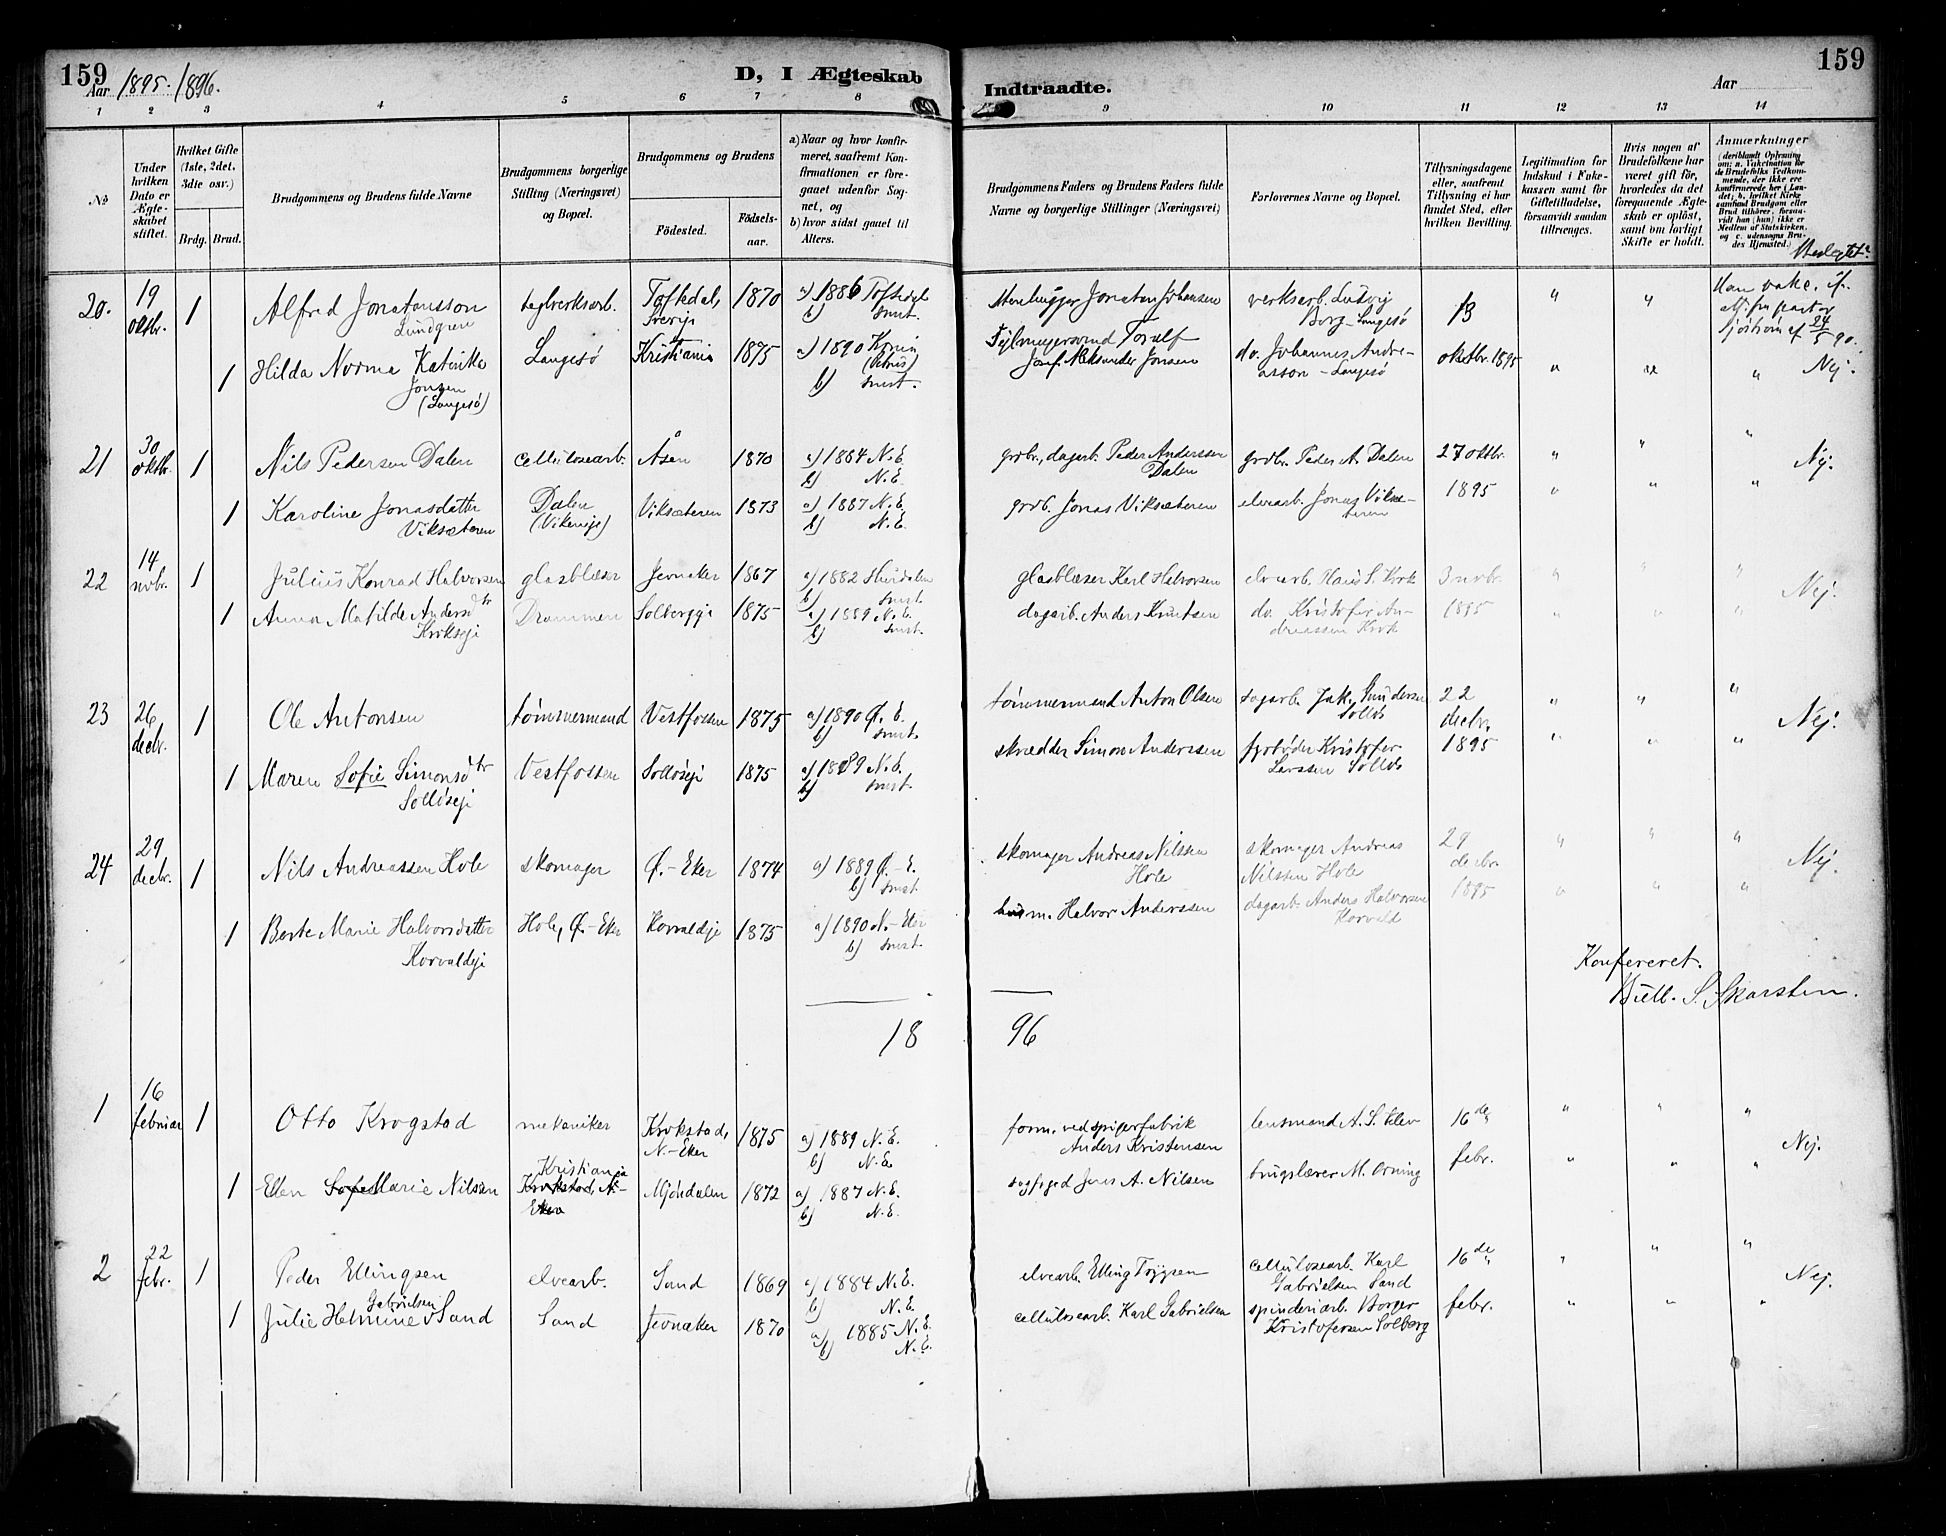 159
Aar 1895. 1896.
D, I Ægteskab
Indtraadte.
Aar
159
1 2 3 4 5 6 7 8 9 10 11 12 13 14
No
Under hvilken Dato er Ægteskabet stiftet.
Hvilket Gifte (1ste, 2det, 3die osv.)
Brdg. Brud.
Brudgommens og Brudens fulde Navne
Brudgommens borgerlige Stilling (Næringsvei) og Bopæl.
Brudgommens og Brudens
Fødested.
Fødselsaar.
a) Naar og hvor konfirmeret, saafremt Konfirmationen er foregaaet udenfor Sognet, og
b) hvor sidst gaaet til Alters.
Brudgommens Faders og Brudens Faders fulde Navne og borgerlige Stillinger (Næringsvei)
Forlovernes Navne og Bopæl.
Tillysningsdagene eller, saafremt Tillysning ei har fundet Sted, efter hvilken Bevilling.
Legitimation for Indskud i Enkekassen samt for Giftetilladelse, forsaavidt saadan tiltrænges.
Hvis nogen af Brudefolkene har været gift før, hvorledes da det foregaaende Ægteskab er opløst, samt om lovligt Skifte er holdt.
Anmærkninger
20. 19 oktbr. 1 Alfred Jonatansson Lundgren teglverksarb. Toftedal, Sverige 1870 a) 1886 Toftedal b) smst. Stenhugger Jonatan Johansen verksarb. Ludvig Borg - Langesø 13 " "
1 Hilda Norma Katinka Jonsen (Langesø) Langesø Kristiania 1875 a) 1890 b) smst. Josef Aleksander Jonsen do. Johannes Andreasson - Langesø oktbr. 1895 " " " Nej.
21 30 oktbr. 1 Nils Pedersen Dalen cellulosearb. Åsen 1870 a) 1884 N. E. b) N. E. grbr., dagarb. Peder Anderssen Dalen grdbr. Peder A. Dalen 27 oktbr. " " " Nej.
1 Karoline Jonasdatter Viksæteren Dalen (Vikeneje) Viksæteren 1873 a) 1887 N. E. b) N. E. grdb. Jonas Viksæteren elvearb. Jonas Viksæteren 1895 " " "
22 14 nvbr. 1 Julius Konrad Halvorsen glasblæser Jevnaker 1867 a) 1882 Hurdalen b) smst. glasblæser Karl Halvorsen elvearb. Hans S. Krok 3 nvbr. " " " Nej.
1 Anna Matilde Andersdtr Krokseje Drammen Solbergeje 1875 a) 1889 N. E. b) smst. dagarb. Anders Knutsen do. Kristofer Andreassen Krok 1895 " " "
23 26 decbr. 1 Ole Antonsen tømmermand Vestfossen 1875 a) 1890 Ø. E. b) smst. tømmermand Anton Olsen dagarb. Jak. Gundersen 22 decbr. " " " Nej.
1 Maren Sofie Simonsdtr Solløseje Vestfossen Solløseje 1875 a) 1889 N. E. b) smst. skrædder Simon Anderssen fyrbøder Kristofer Larssen 1895 " " "
24 29 decbr. 1 Nils Andreassen Hole skomager Ø.-Eker 1874 a) 1889 Ø.-E. b) smst. skomager Andreas Nilssen Hole skomager Andreas Nilssen Hole 29 decbr. " " " Nej.
1 Berte Marie Halvorsdatter Korvaldeje Hole, Ø.-Eker Korvaldeje 1875 a) 1890 N.-Eker b) smst. husm. Halvor Anderssen dagarb. Anders Halvorsen Korvald 1895 " " "
Konfereret.
S. Skarsten.
18 96
1 16 februar 1 Otto Krogstad mekaniker Krokstad, N.-Eker 1875 a) 1889 N. E. b) N. E. form. ved spigerfabrik Anders Kristensen lensmand A. S. Klev 16de " " " Nej.
1 Ellen Sofie Marie Nilsen Kristiania Krokstad, N.-Eker Mjøndalen 1872 a) 1887 N. E. b) N. E. sagfoged Jens A. Nilsen brugslærer M. Orning febr. " " "
2 22 febr. 1 Peder Ellingsen elvearb. Sand 1869 a) 1884 N. E. b) N. E. elvearb. Elling cellulosearb. Karl Gabrielsen Sand 16de " " " Nej.
1 Julie Helmine Gabrielsen Sand Sand Jevnaker 1870 a) 1885 N. E. b) N. E. cellulosearb. Karl Gabrielsen spinderiarb. Borger Kristofersen Solberg febr. " " "